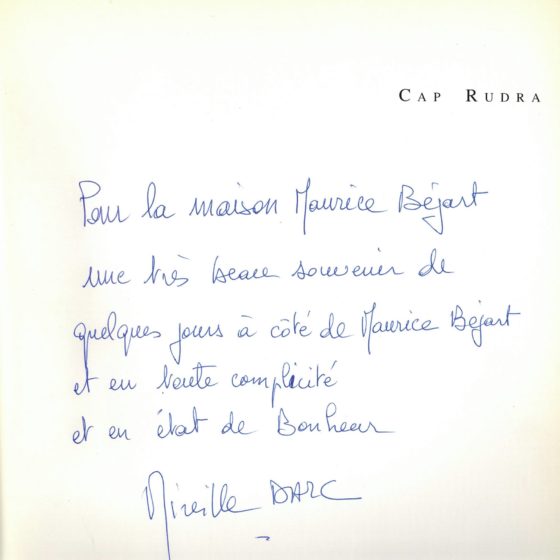 CAP RUDRA
Pour la maison Maurice Béjart
une très beau souvenir de
quelques jours à côté de Maurice Béjart
et en toute complicité
et en état de Bonheur
Mireille DARC